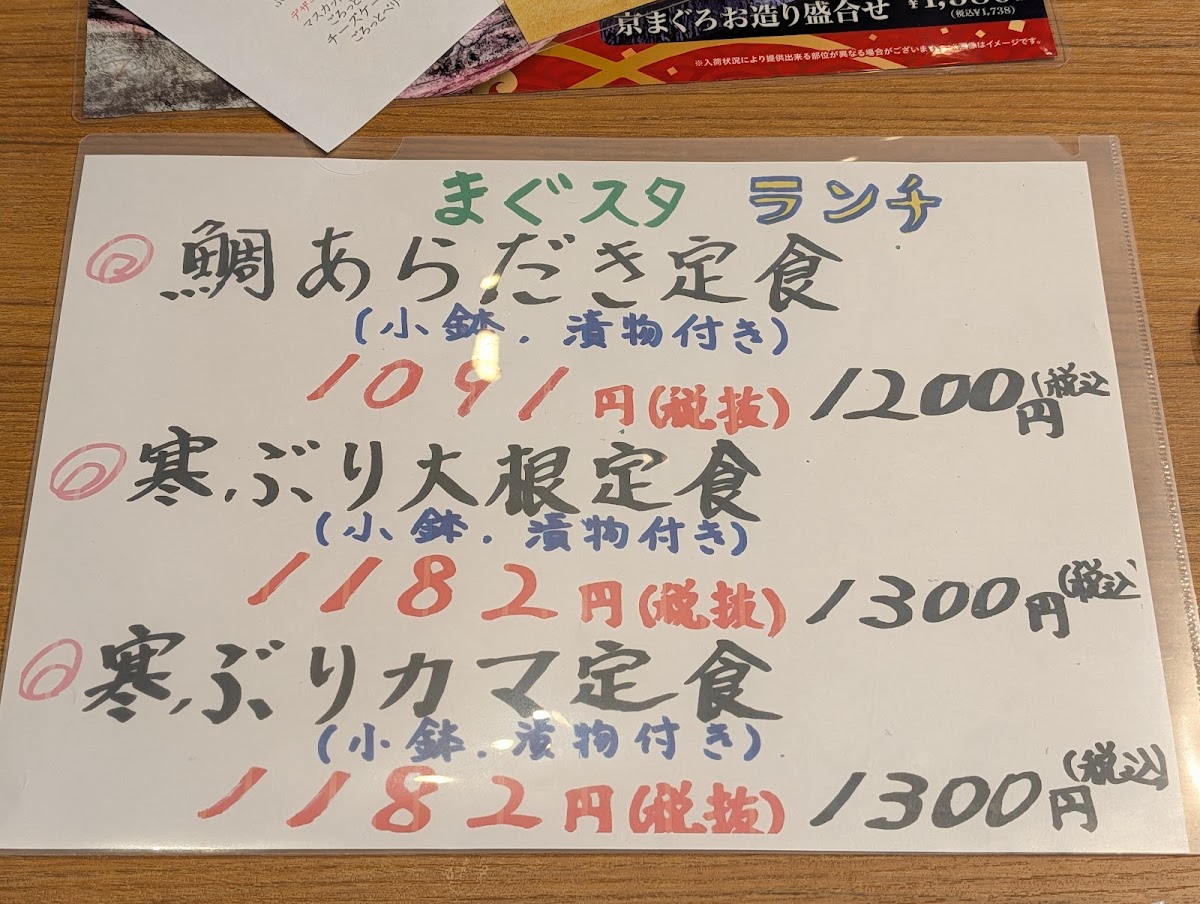 デザ
マスカット
ごろっと
チーズケー
ごろっとベリ
京まぐろお造り盛合せ
(税込¥1,738)
※入荷状況により提供出来る部位が異なる場合がございます 画像はイメージです。
まぐスタ ランチ
◎鯛あらだき定食
(小鉢.漬物付き)
1091円(税抜) 1200円(税込
◎寒ぶり大根定食
(小鉢.漬物付き)
1182円(税抜) 1300円(税込)
◎寒ぶりカマ定食
(小鉢.漬物付き)
1182円(税抜) 1300円(税込)